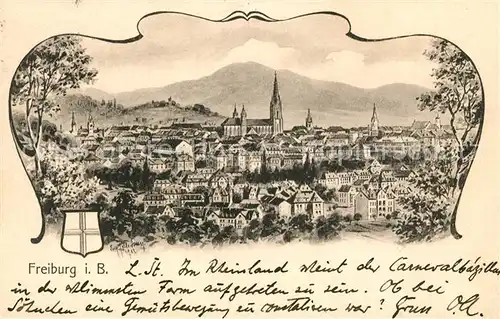 Freiburg i. B.
L. St. Im Rheinland scheint der Carnevalbazillen
in der schlimmsten Form aufgetreten zu sein. Ob bei
eine Gemütsbewegung zu constatiren war? Gruss